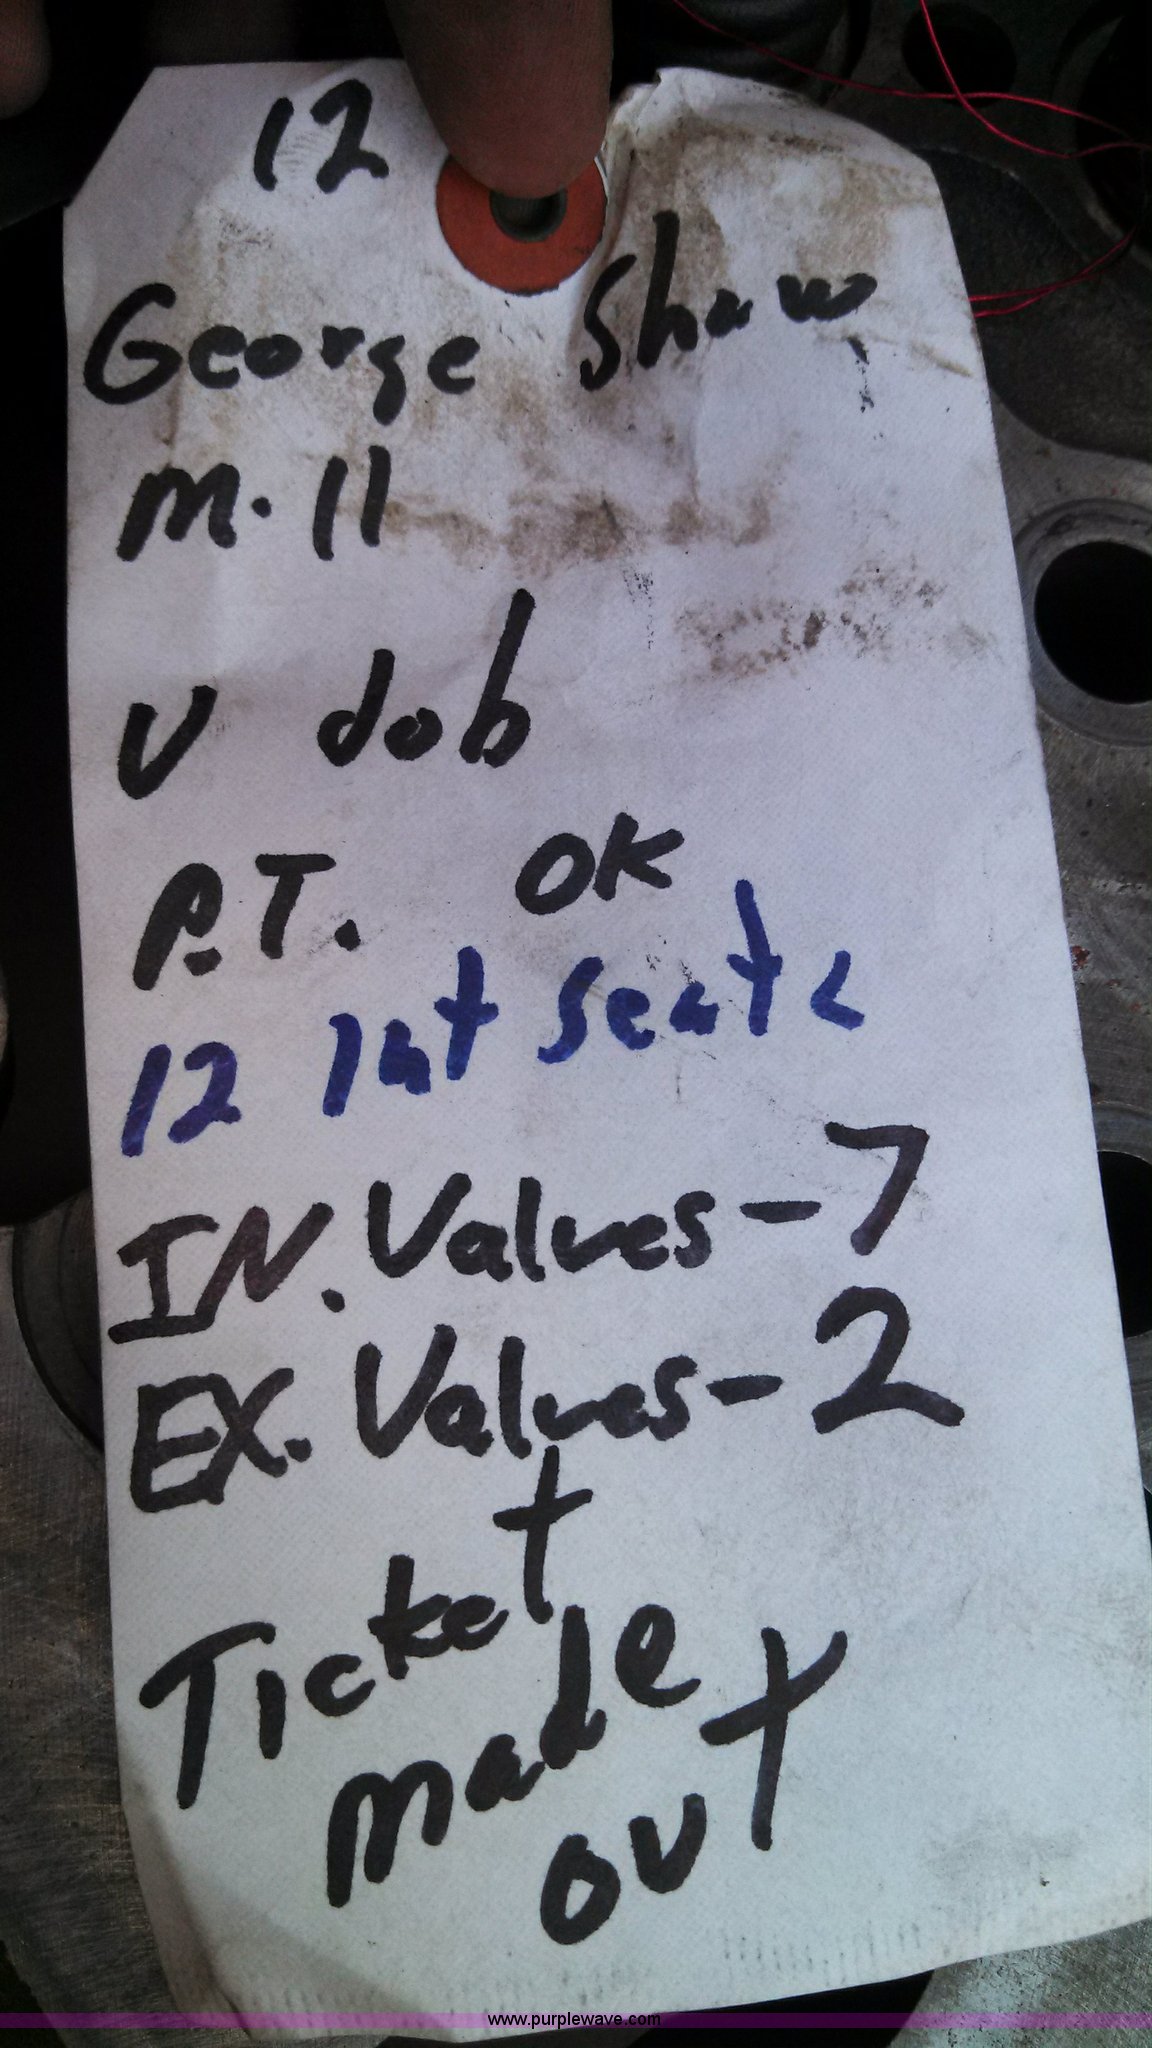 12
George Shaw
M.11
V dob
P.T. OK
12 Int Seats
IN. Valves-7
EX. Valves-2
Ticket
made
out
www.purplewave.com